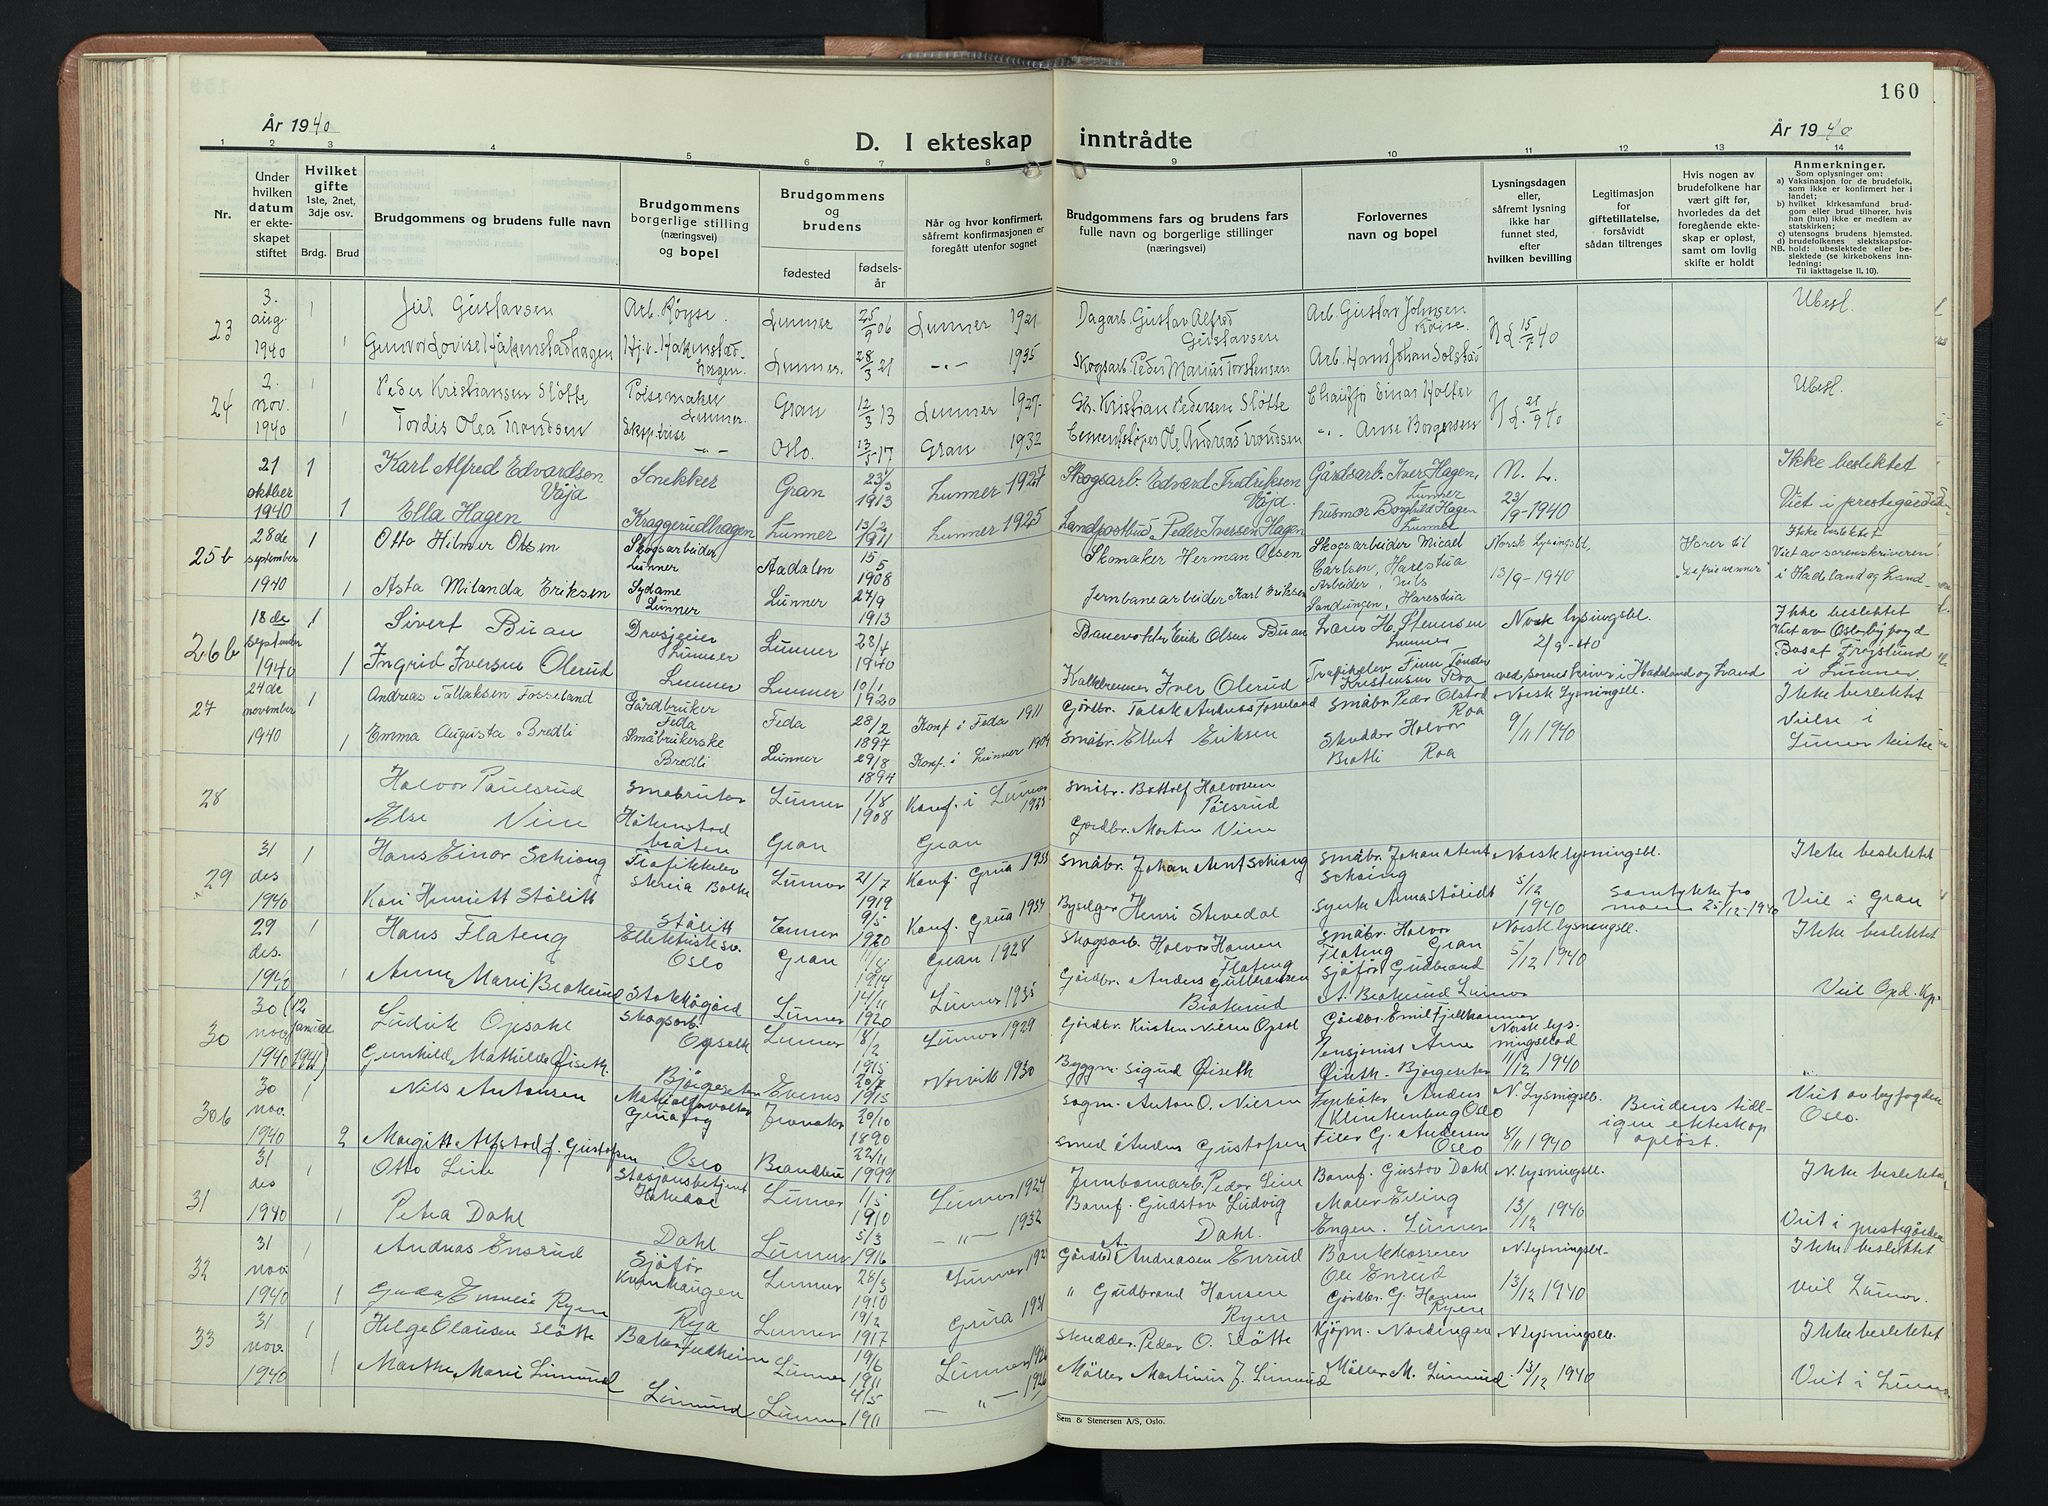 160
År 1940
D. I ekteskap inntrådte
År 1940
1 2 3 4 5 6 7 8 9 10 11 12 13 14
Nr.
Under hvilken datum er ekteskapet stiftet
Hvilket gifte
1ste, 2net, 3dje osv.
Brdg. Brud
Brudgommens og brudens fulle navn
Brudgommens borgerlige stilling (næringsvei) og bopel
Brudgommens og brudens
fødested
fødselsår
Når og hvor konfirmert, såfremt konfirmasjonen er foregått utenfor sognet
Brudgommens fars og brudens fars fulle navn og borgerlige stillinger (næringsvei)
Forlovernes navn og bopel
Lysningsdagen eller, såfremt lysning ikke har funnet sted, efter hvilken bevilling
Legitimasjon for giftetillatelse, forsåvidt sådan tiltrenges
Hvis nogen av brudefolkene har vært gift før, hvorledes da det foregående ekteskap er opløst, samt om lovlig skifte er holdt
Anmerkninger.
Som oplysninger om:
a) Vaksinasjon for de brudefolk, som ikke er konfirmert her i landet;
b) hvilket kirkesamfund brudgom eller brud tilhører, hvis han (hun) ikke er medlem av statskirken;
c) utensogns brudens hjemsted.
d) brudefolkenes slektskapsforhold: ubeslektede eller beslektede (se kirkebokens innledning:
NB.
Til iakttagelse II, 10).
23 3. aug. 1940 1 Jul Gustavsen Arb. Røyse. Lunner 25/9 06 Lunner 1921 Dagarb. Gustav Alfred Gustavsen Arb. Gustav Johnsen N L 15/7 40 Ubesl.
1 Gunvor Lovise Håkenstadhagen Lunner. 28/3 21 -"- 1935 Skogsarb. Peder Marius Torstensen Arb. Hans Johan Solstad
24 2. nov. 1940 1 Peder Kristiansen Sløtte Pølsemaker Lunner. Gran 12/3 13 Lunner 1927 Kristian Pedersen Sløtte Einar Holter N L. 21/9 40 Ubesl.
1 Tordis Olea Trondsen Eksp.trise -"- Oslo. 13/5 17 Gran 1932 Cementstøper Ole Andreas Trondsen -"- Arne Borgersen
21 oktber 1940 1 Karl Alfred Edvardsen Våja Snekker Gran 23/3 1913 Lunner 1927 Skogsarb. Edvard Fredriksen Våja. Gårdsarb. Iver Hagen, Lunner N. L. 23/9-1940 Ikke beslektet
1 Ella Hagen Kraggerudhagen Lunner 13/2 1911 Lunner 1925 Landpostbud Peder Iversen Hagen husmor Borghild Hagen Lunner Viet i prestegården
25b 28de september 1940 1 Otto Hilmer Olsen Skogsarbeider Lunner Aadalen 15/5 1908 Skomaker Herman Olsen Skogsarbeider Micael Carlsen, Harestua Norsk Lysningsbl. 13/9-1940 Hører til "De frie venner" Ikke beslektet Viet av sorenskriveren i Hadeland og Land
1 Asta Milanda Eriksen Sydame Lunner Lunner 27/9 1913 Jernbanearbeider Karl Eriksen Arbeider, Nils Sandungen, Harestua
26b 18de september 1940 1 Sivert Buan Drosjeeier Lunner Lunner 28/4 1940 Banevokter Erik Olsen Buan Lærer H. Stenersen Lunner Norsk lysningsbl. 2/9-40 Ikke beslektet Viet av Oslo byfogd Bosat Frøislund i Lunner
1 Ingrid Iversen Olerud Lunner Lunner 10/1 1920 Kalkbrenner Iver Olerud Trafikelev Finn Tønder Kristensen Roa ved sorenskriver i Hadeland og Land
27 24de november 1940 1 Andreas Tallaksen Fosseland Gårdbruker Feda Feda 28/2 1897 Konf. i Feda 1911 Gårdbr. Talak Andreas Fosseland Småbr. Peder Olstad Roa Norsk Lysningsbl. 9/11 1940 Ikke beslektet
1 Emma Augusta Bredli Småbrukerske Bredli Lunner 29/8 1894 Konf. i Lunner 1909 Småbr. Ellut Eriksen Skredder Halvor Bratli Roa Vielse i Lunner kirke
28 Halvor Paulsrud Småbruker Lunner 1/8 1908 Konf. i Lunner 1923 Småbr. Bottolf Halvorsen Pålsrud
Else Vien Håkenstadbråten Gran Gran Gårdbr. Morten Vien
29 31 des 1940 1 Hans Einar Schiong Trafikkelev Lunner 21/7 1919 Konf. Grua 1933 Småbr. Johan Arnt Schiong Småbr. Johan Arnt Schiong Norsk lysningsbl. 5/12 1940 Ikke beslektet
Kari Henriett Stålitt Stålitt Lunner 9/5 1920 Konf. Grua 1934 Byselger Henri Stevedal Samtykke fra moren 25/12-1940 Viet i Gran
29 des. 1940 1 Hans Flateng Oslo Gran 1914 Gran 1928 Skogsarb. Halvor Hansen Flateng Småbr. Halvor Flateng Gran Norsk lysningsbl. 5/12 1940 Ikke beslektet
1 Anne Marie Braterud Lunner 14/11 1920 Lunner 1935 Gårdbr. Anders Gulbrandsen Braterud Sjåfør Gudbrand A. Braterud Lunner
30 30 nov. 1940 (12 januar 1941) Ludvik Opsahl Skogsarb. Opsahl Lunner 8/2 1915 Lunner 1929 Gårdbr. Kristen Nilsen Opsal Gårdbr. Emil Fjellhammer Norsk lysningsblad 11/12 1940
Gunhild Mathilde Øiseth Bjørgeseter Evenes 20/7 1915 Narvik 1930 Byggm. Sigurd Øiseth Pensjonist Arne Øiseth - Bjørgeseter
30b 30 nov. 1940 1 Nils Antonsen Jevnaker 20/10 1890 Sagm. Anton O. Nilsen Anders Klinkenberg Oslo N. Lysningsbl. 8/11 1940 Brudens tidligere ekteskap opløst. Viet av byfogden Oslo.
2 Margitt Alfstad f. Gustafsen Oslo Brandbu 22/11 1999 Smed Anders Gustafsen Filer G. Andersen Oslo
31 31 des 1940 1 Otto Lien Stasjonsbetjent Lunner 1/5 1910 Lunner 1924 Jernbanearb. Peder Lien Banf. Gustav Dahl N. lysningsbl. 13/12 1940 Ikke beslektet
1 Petra Dahl Dahl Lunner 5/3 1916 -"- 1932 Banf. Gudstav Ludvig Dahl. Maler Erling Engen. Lunner Viet i prestegården
32 31 nov. 1940 1 Andreas Ensrud Sjåfør Kvenhaugen Lunner 28/3 1910 Lunner Gårdbr. A. Andreasen Enrud Bankkasserer Ole Enrud N. Lysningsbl. 13/12 1940 Ikke beslektet
1 Guda Ryen Rya Lunner 19/2 1917 Grua 1931 " Gudbrand Hansen Ryen Gårdbr. G. Hansen Ryen Viet Lunner.
33 31 nov. 1940 1 Helge Olausen Sløtte Baker Fredheim Lunner 19/6 1911 Lunner 1926 Skredder. Peder O. Sløtte Kjøpm. Nordingen N Lysningsbl. 13/12 1940 Ikke beslektet
1 Marthe Marie Limund Limund Lunner 4/5 1911 -"- 1926 Møller Martinius J. Limund Møller M. Limund Viet i Lunner
Sem & Stenersen A/S, Oslo.